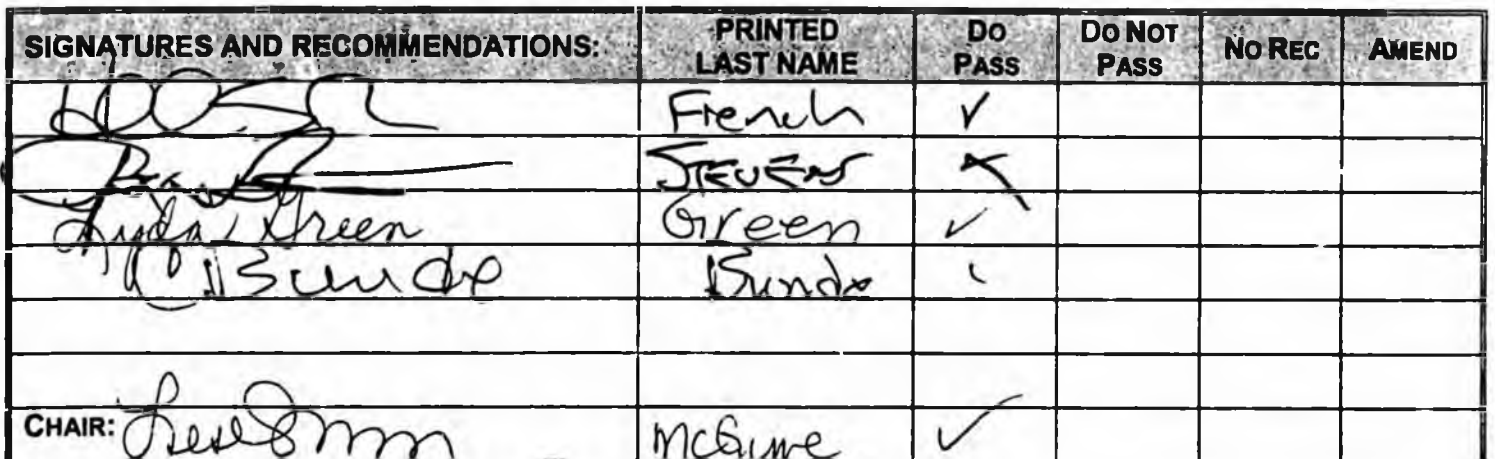 SIGNATURES AND RECOMMENDATIONS: PRINTED LAST NAME DO PASS DO NOT PASS NO REC AMEND
French ✓
STEVENS
Lyda Green Green ✓
C Bunde Bunde
CHAIR: McGuire ✓